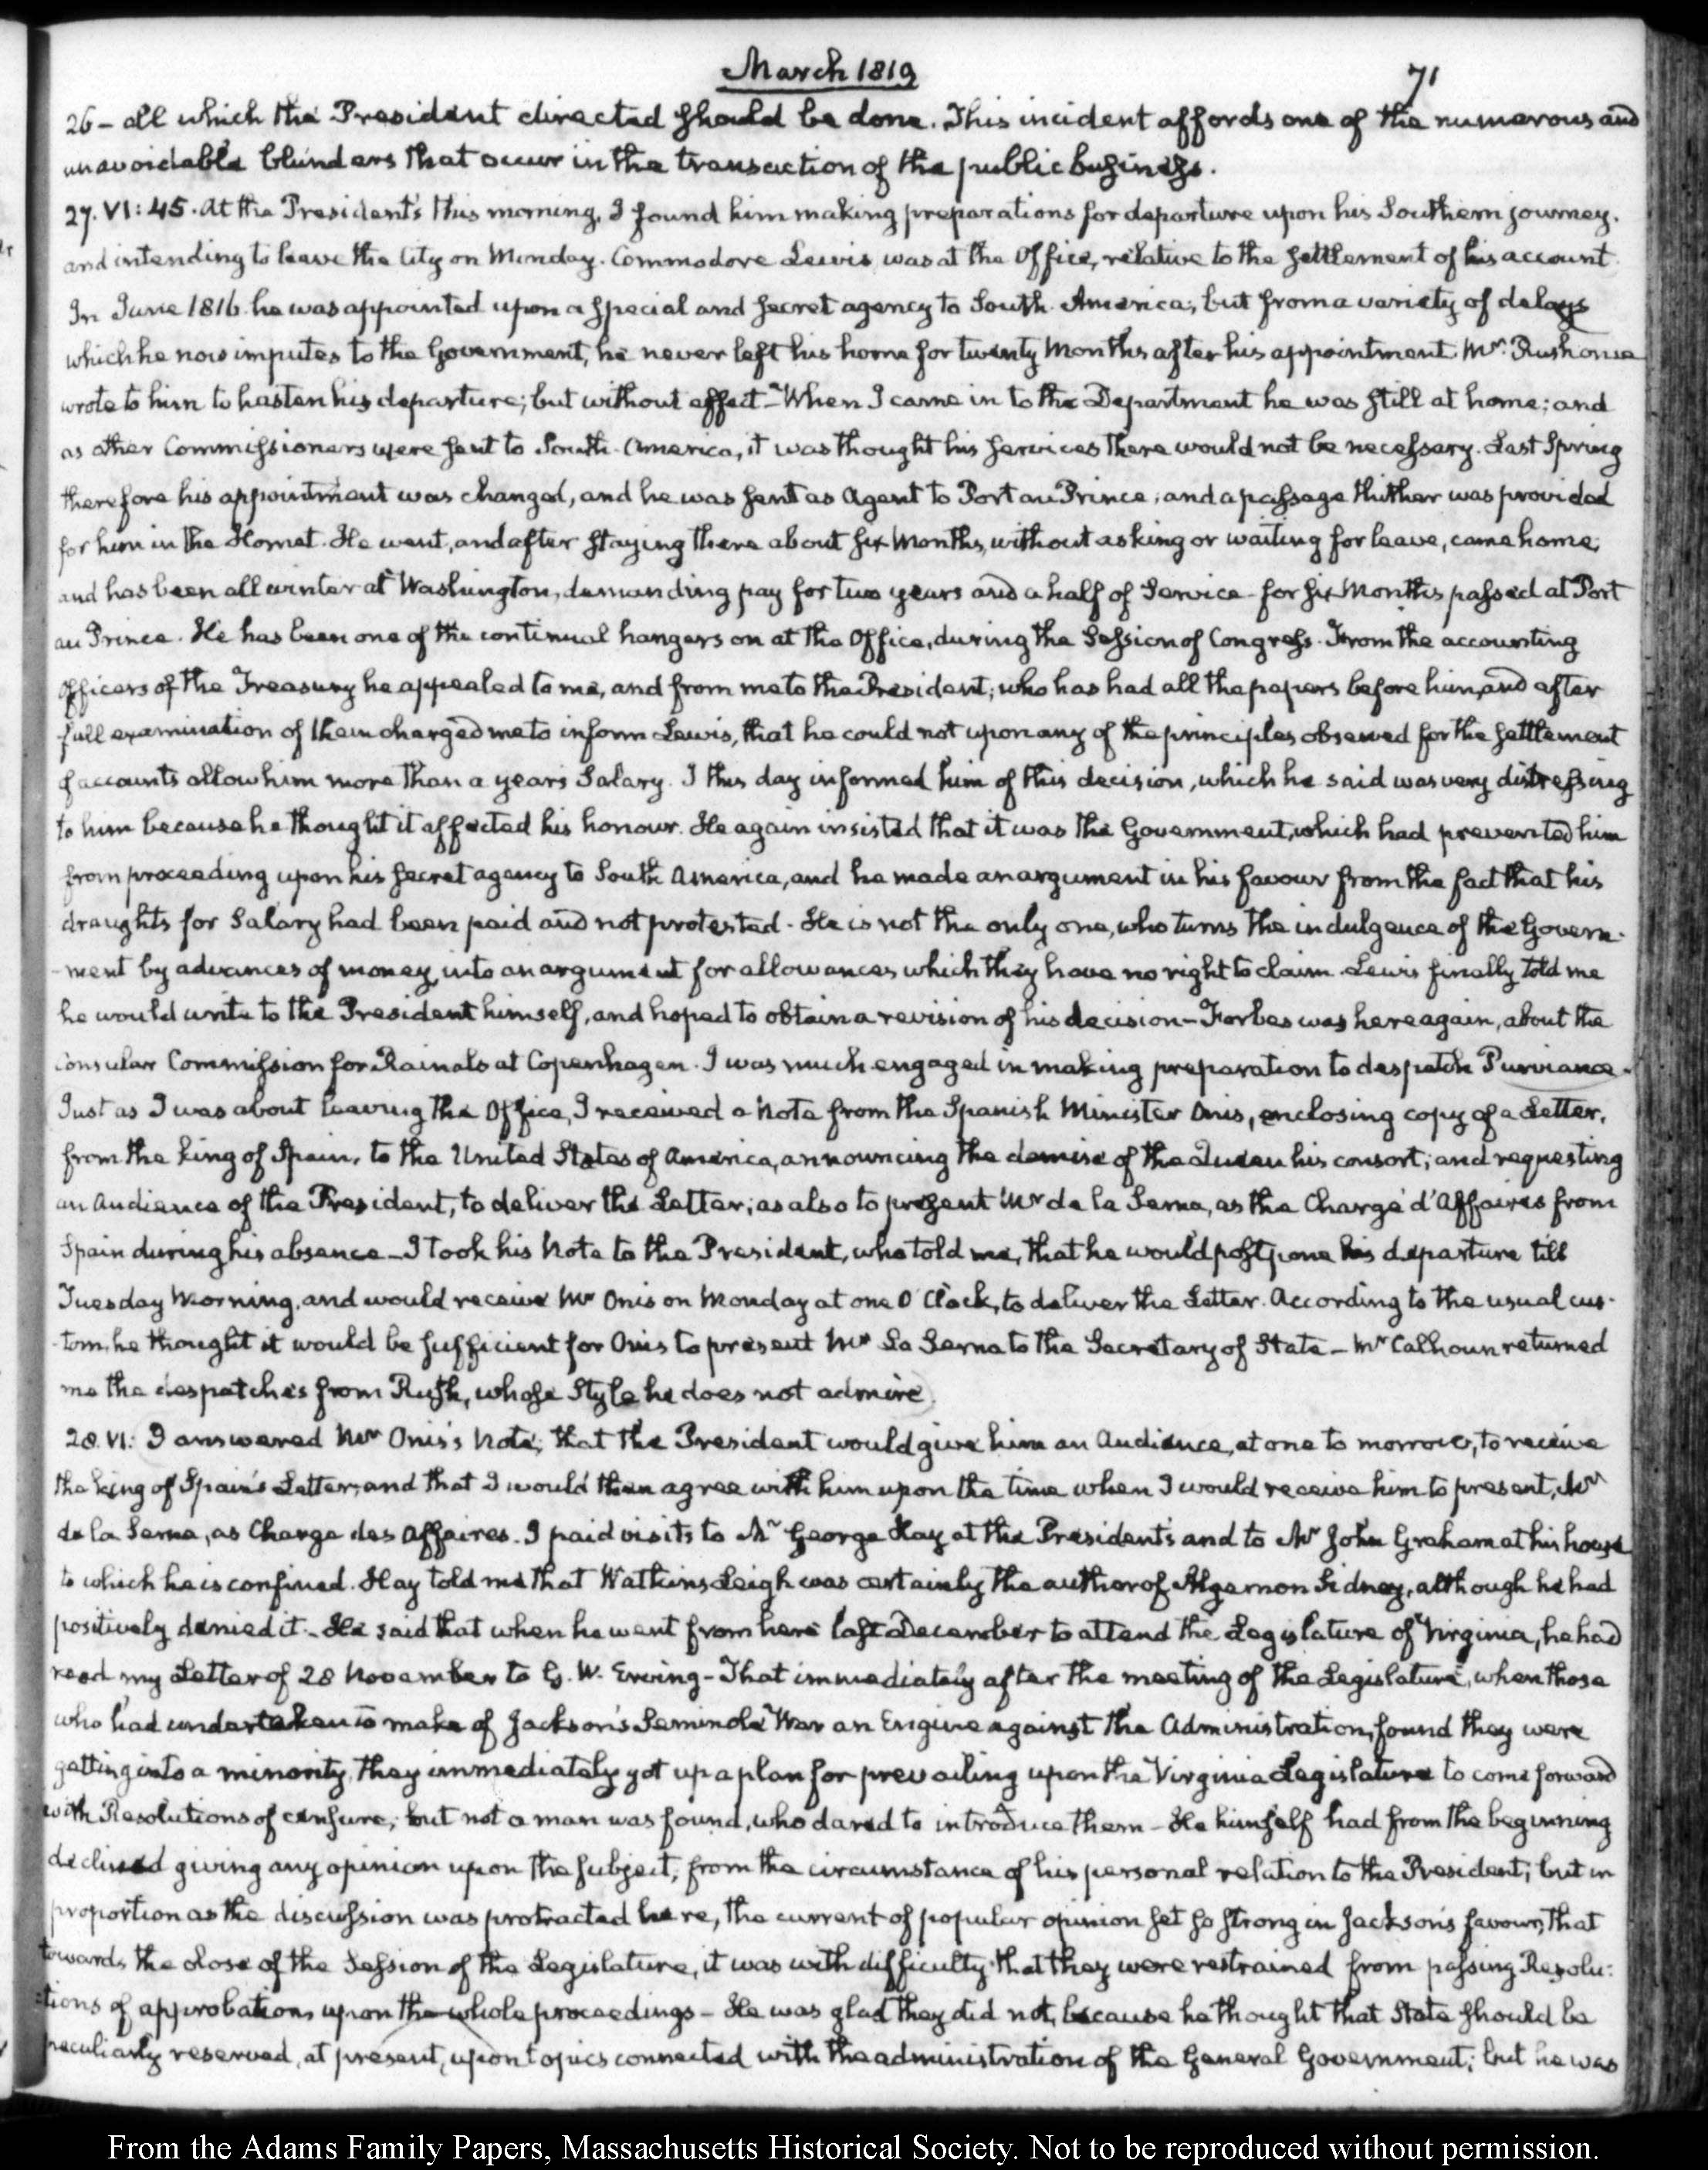 March 1819
71
26 – all which the President directed should be done. This incident affords one of the numerous and
unavoidable blunders that occur in the transaction of the public business.
27. VI: 45. At the President's this morning, I found him making preparations for departure upon his Southern journey.
and intending to leave the City on Monday. Commodore Lewis was at the Office, relative to the settlement of his account
In June 1816 he was appointed upon a special and secret agency to South America; but from a variety of delays
which he now imputes to the Government, he never left his home for twenty Months after his appointment. Mr. Rush once
wrote to him to hasten his departure; but without effect – When I came in to the Department he was still at home; and
as other Commissioners were sent to South America, it was thought his services there would not be necessary. Last Spring
therefore his appointment was changed, and he was sent as Agent to Port au Prince; and a passage thither was provided
for him in the Hornet. He went, and after staying there about six Months, without asking or waiting for leave, came home;
and has been all winter at Washington, demanding pay for two years and a half of Service – for six Months passed at Port
au Prince. He has been one of the continual hangers on at the Office, during the Session of Congress. From the accounting
Officers of the Treasury he appealed to me, and from me to the President; who has had all the papers before him, and after
full examination of them charged me to inform Lewis, that he could not upon any of the principles observed for the settlement
of accounts allow him more than a year's Salary. I this day informed him of this decision, which he said was very distressing
to him because he thought it affected his honour. He again insisted that it was the Government, which had prevented him
from proceeding upon his secret agency to South America, and he made an argument in his favour from the fact that his
draughts for Salary had been paid and not protested. He is not the only one, who turns the indulgence of the Govern-
-ment by advances of money, into an argument for allowances which they have no right to claim. Lewis finally told me
he would write to the President himself, and hoped to obtain a revision of his decision – Forbes was here again, about the
Consular Commission for Rainals at Copenhagen. I was much engaged in making preparation to despatch Purviance.
Just as I was about leaving the Office, I received a Note from the Spanish Minister Onis, enclosing copy of a Letter,
from the king of Spain, to the United States of America, announcing the demise of the Queen his consort; and requesting
an Audience of the President, to deliver the Letter; as also to present Mr de la Serna, as the Chargé d'Affaires from
Spain during his absence – I took his Note to the President, who told me, that he would postpone his departure till
Tuesday Morning, and would receive Mr Onis on Monday at one O'Clock, to deliver the Letter. According to the usual cus-
-tom, he thought it would be sufficient for Onis to present Mr La Serna to the Secretary of State – Mr Calhoun returned
me the despatches from Rush, whose Style he does not admire.
28. VI: I answered Mr Onis's Note, that the President would give him an Audience, at one to morrow, to receive
the king of Spain's Letter; and that I would then agree with him upon the time when I would receive him to present, Mr
de la Serna, as Charge des Affaires. I paid visits to Mr George Hay at the President's and to Mr John Graham at his house
to which he is confined. Hay told me that Watkins Leigh was certainly the author of Algernon Sidney, although he had
positively denied it – He said that when he went from here last December to attend the Legislature of Virginia, he had
read my Letter of 28 November to G. W. Erving – That immediately after the meeting of the Legislature, when those
who had undertaken to make of Jackson's Seminole War an Engine against the Administration, found they were
getting into a minority, they immediately got up a plan for prevailing upon the Virginia Legislature to come forward
with Resolutions of censure; but not a man was found, who dared to introduce them – He himself had from the beginning
declined giving any opinion upon the subject, from the circumstance of his personal relation to the President; but in
proportion as the discussion was protracted here, the current of popular opinion set so strong in Jackson's favour, that
towards the close of the Session of the Legislature, it was with difficulty that they were restrained from passing Resolu:
:tions of approbation, upon the whole proceedings – He was glad they did not, because he thought that State should be
peculiarly reserved, at present, upon topics connected with the administration of the General Government; but he was
From the Adams Family Papers, Massachusetts Historical Society. Not to be reproduced without permission.